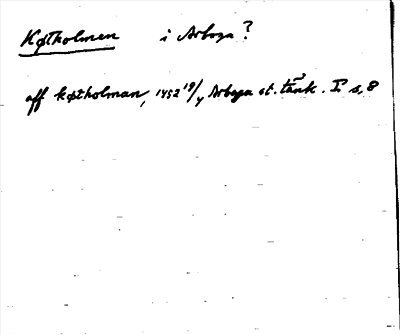 Køtholmen i Arboga?
aff køtholman, 1452 19/4 Arboga st. tänk. I s. 8